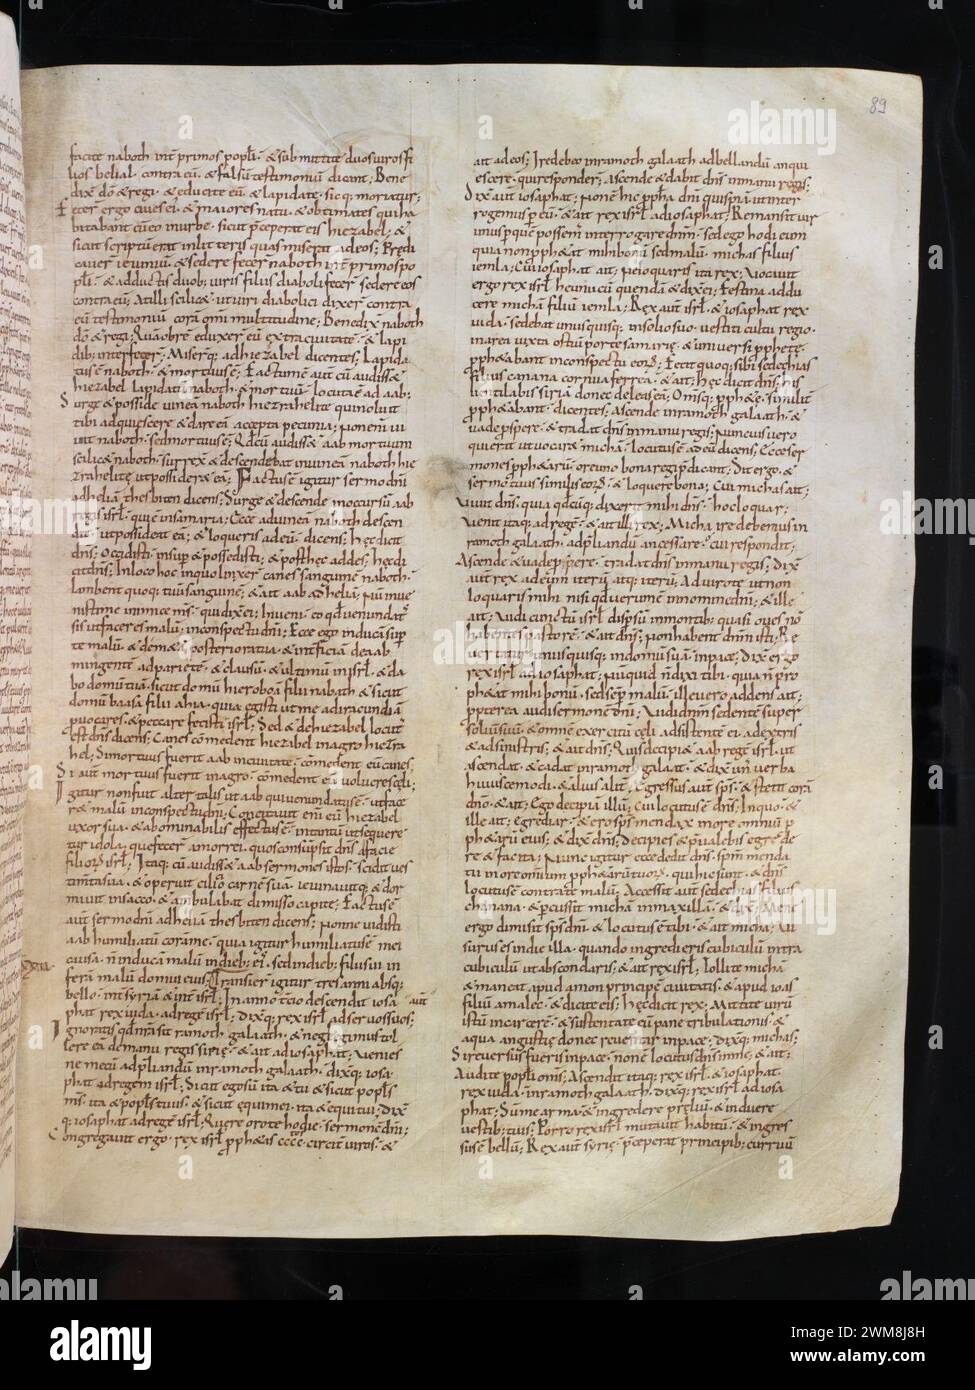 89
facite naboth int̄ primos popl̄i· & submittite duos uiros fi
lios belial· contra eū· & falsū testimoniū dicant; Bene
dix̄ dō & regi· & educite eū & lapidate· sicq; moriatur;
Fecer̄ ergo ciues ei· & maiores natu & obtimates qui ha
bitabant cū eo in urbe· sicut p̄ceperat eis hiezabel; &
sicut scriptū erat in litteris quas miserat ad eos; Prędi
cauer̄ ieiuniū· & sedere fecer̄ naboth int̄ primos po
pl̄i· & adductis duob; uiris filiis diaboli fecer̄ sedere eos
contra eū; At illi scilic& ut uiri diabolici dixer̄ contra
eū testimoniū corā om̄i multitudine; Benedix̄ naboth
dō & regi; Quāobrē eduxer̄ eū extra ciuitatē· & lapi
dib; interfecer̄; Miserq; ad hiezabel dicentes; Lapida
tus ē naboth & mortuus ē; Factum ē aut̄ cū audiss&
hiezabel lapidatū naboth & mortuū· locuta ē ad aab;
Surge & posside uineā naboth hiezrahelitę qui noluit
tibi adquiescere & dare eā accepta pecunia; non enī ui
uit naboth· sed mortuus ē; Qd̄ cū audiss& aab mortuum
scilic& naboth· surrex̄ & descendebat in uineā naboth hie
zrahelitę ut possider& eā; Factus ē igitur sermo dn̄i
ad heliā thesbiten dicens; Surge & descende in occursū aab
regis isrl̄· qui ē in samaria; Ecce ad uineā naboth descen
dit· ut possideat eā; & loqueris ad eū· dicens; hęc dicit
dn̄s; Occidisti· insup̄ & possedisti; & post hęc addes; hęc di
cit dn̄s; In loco hoc in quo linxer̄ canes sanguinē naboth·
lambent quoq; tuū sanguinē; & ait aab ad heliā; Nū inue
nisti me inimice m̄s· qui dix̄ ei; Inueni· eo qd̄ uenundat;
sis ut faceres malū· in conspectu dn̄i; Ecce ego inducā sup̄
te malū· & demetā posteriora tua· & interficiā de aab
mingentē ad pariet̄ē· & clausū· & ultimū in isrl̄· & da
bo domū tuā· sicut domū hieroboā filii nabath· & sicut
domū baasa filii ahia· quia egisti ut me ad iracundiā
puocares· & peccare fecisti isrl̄; Sed & de hiezabel locut;
est dn̄s dicens; Canes comedent hiezabel in agro hiezra
hel; Si mortuus fuerit aab in ciuitate· comedent eū canes;
Si aut̄ mortuus fuerit in agro· comedent eū uolucres cęli;
Igitur non fuit alter talis ut aab qui uenundatus ē· ut face
r& malū in conspectu dn̄i; Concitauit enī eū hiezabel
uxor sua· & abominabilis effectus ē· in tantū ut sequere
tur idola· quę fecer̄ amorrei· quos consūpsit dn̄s a facie
filiorū isrl̄; Itaq; cū audiss& aab sermones istos· scidit ues
timenta sua· & operuit cilicio carnē suā· ieiunauitq; & dor
miuit in sacco· & ambulabat dimisso capite; Factus ē
aut̄ sermo dn̄i ad heliā thesbiten dicens; nonne uidisti
aab humiliatū corā me· quia igitur humiliatus ē mei
causa· n̄ inducā malū in dieb; ei;· sed in dieb; filii sui in
ferā malū domui eius; Transier̄ igitur tres anni absq;
bello· int̄ syriā & int̄ isrl̄; In anno t̄cio descendit iosa aut̄
phat rex iuda· ad regē isrl̄; dixq; rex isrl̄ ad seruos suos;
Ignoratis qd̄ nr̄a sit ramoth galaath· & neglegimus tol
lere eā de manu regis sirię· & ait ad iosaphat; Venies
ne mecū ad p̄liandū in ramoth galaath· dixq; iosa
phat ad regem isrl̄; Sicut ego sū· ita & tu & sicut popl̄s
ms̄· ita & popl̄s tuus· & sicut equi mei· ita & equi tui; Dix̄
q; iosaphat ad regē isrl̄; Quere oro te hodie· sermonē dn̄i;
Congregauit ergo· rex isrl̄ pph&as cccc; circit̄ uiros· &
ait ad eos; Ire debeo in ramoth galaath ad bellandū an qui
escere· qui responder̄; ascende & dabit dn̄s in manu regis;
Dix̄ aut̄ iosaphat; non ē hic ppha dn̄i quispiā· ut inter
rogemus p̄ eū· & ait rex isrl̄ ad iosaphat; Remansit uir
unus p̄ quē possem; interrogare dnm̄· sed ego hodi eum
quia non pph&at mihi bonū sed malū· micheas filius
iemla; Cui iosaphat ait; ne loquaris ita rex; Vocauit
ergo rex isrl̄ heunucū quendā & dix̄ ei; Festina addu
cere micheā filiū iemla; Rex aut̄ isrl̄· & iosaphat rex
iuda· sedebat unusquisq; in solio suo· uestiti cultu regio·
in area iuxta ostiū porte samarię· & uniuersi pphetę
pph&abant in conspectu eorū; Fecit quoq; sibi sedechias
filius canana cornua ferrea· & ait; hęc dicit dn̄s; his
uentilabis siriā donec deleas eā; Om̄sq; pph&ę· similit̄
pph&abant· dicentes; ascende in ramoth galaath· &
uade p̄spere· & trad& dn̄s in manu regis; nuncius uero
qui ierat ut uocar& micheā· locutus ē ad eū dicens; Ecce ser
mones pph&arū· ore uno bona regi p̄dicant; Sit ergo· &
sermo tuus similis eorū· & loquere bona; Cui micheas ait;
Viuit dn̄s· quia qd̄cūq; dixerit mihi dn̄s· hoc loquar;
Venit itaq; ad regē· & ait illi rex; Micha ire debemus in
ramoth galaath· ad p̄liandū· an cessare· cui respondit;
Ascende & uade p̄spere· trad& dn̄s in manu regis; Dix̄
aut̄ rex ad eum· iterū atq; iterū; Adiuro te ut non
loquaris mihi· nisi qd̄ uerum ē in nomine dn̄i; & ille
ait; Vidi cunctū isrl̄ dispsū in montib; quasi oues n̄
habentes pastorē· & ait dn̄s; non habent dnm̄ isti; Re
uertatur unusquisq; in domū suā in pace; Dix̄ ergo
rex isrl̄ ad iosaphat; Nunquid n̄ dixi tibi· quia n̄ pro
ph&at mihi bonū· sed semp̄ malū; ille uero addens ait;
ppterea audi sermonē dn̄i; Vidi dnm̄ sedentē super
soliū suū· & omnē exercitū cęli adsistente ei· a dextris
& a sinistris; & ait dn̄s; Quis decipi& aab regē isrl̄· ut
ascendat· & cadat in ramoth galaat· & dix̄ un; uerba
huiuscemodi· & alius alit̄; Egressus aut̄ sp̄s· & stetit corā
dnō· & ait; Ego decipiā illū; Cui locutus ē dn̄s; In quo· &
ille ait; Egrediar· & ero sp̄s mendax in ore omniū p
ph&arū eius; & dix̄ dn̄s; Decipies & p̄ualebis egre de
re & fac ita; Nunc igitur ecce dedit dn̄s· sp̄m menda
tii in ore omniū pph&arū tuorū· qui hic sunt· & dn̄s
locutus ē contra te malū; Accessit aut̄ sedechias filius
chanana· & p̄cussit micheā in maxillā· & dix̄; Me n̄
ergo dimisit sp̄s dn̄i· & locutus ē tibi· & ait micha; Vi
surus es in die illa· quando ingredieris cubiculū intra
cubiculū ut abscondaris; & ait rex isrl̄; Tollite michā
& maneat apud amon principē ciuitatis· & apud ioas
filiū amalec· & dicite eis; hęc dicit rex; Mittite uirū
istū in carcerē· & sustentate eū pane tribulationis· &
aqua angustię donec reuertar in pace· Dixq; micheas;
Si reuersus fueris in pace· non ē locutus dn̄s in me; & ait;
Audite popl̄i om̄s; Ascendit itaq; rex isrl̄· & iosaphat
rex iuda· in ramoth galaath· dixq; rex isrl̄ ad iosa
phat; Sume arma· & ingredere pręliū· & induere
uestib; tuis; Porro rex isrl̄ mutauit habitū· & ingres
sus ē bellū; Rex aut̄ syrię· p̄ceperat principib; curruū